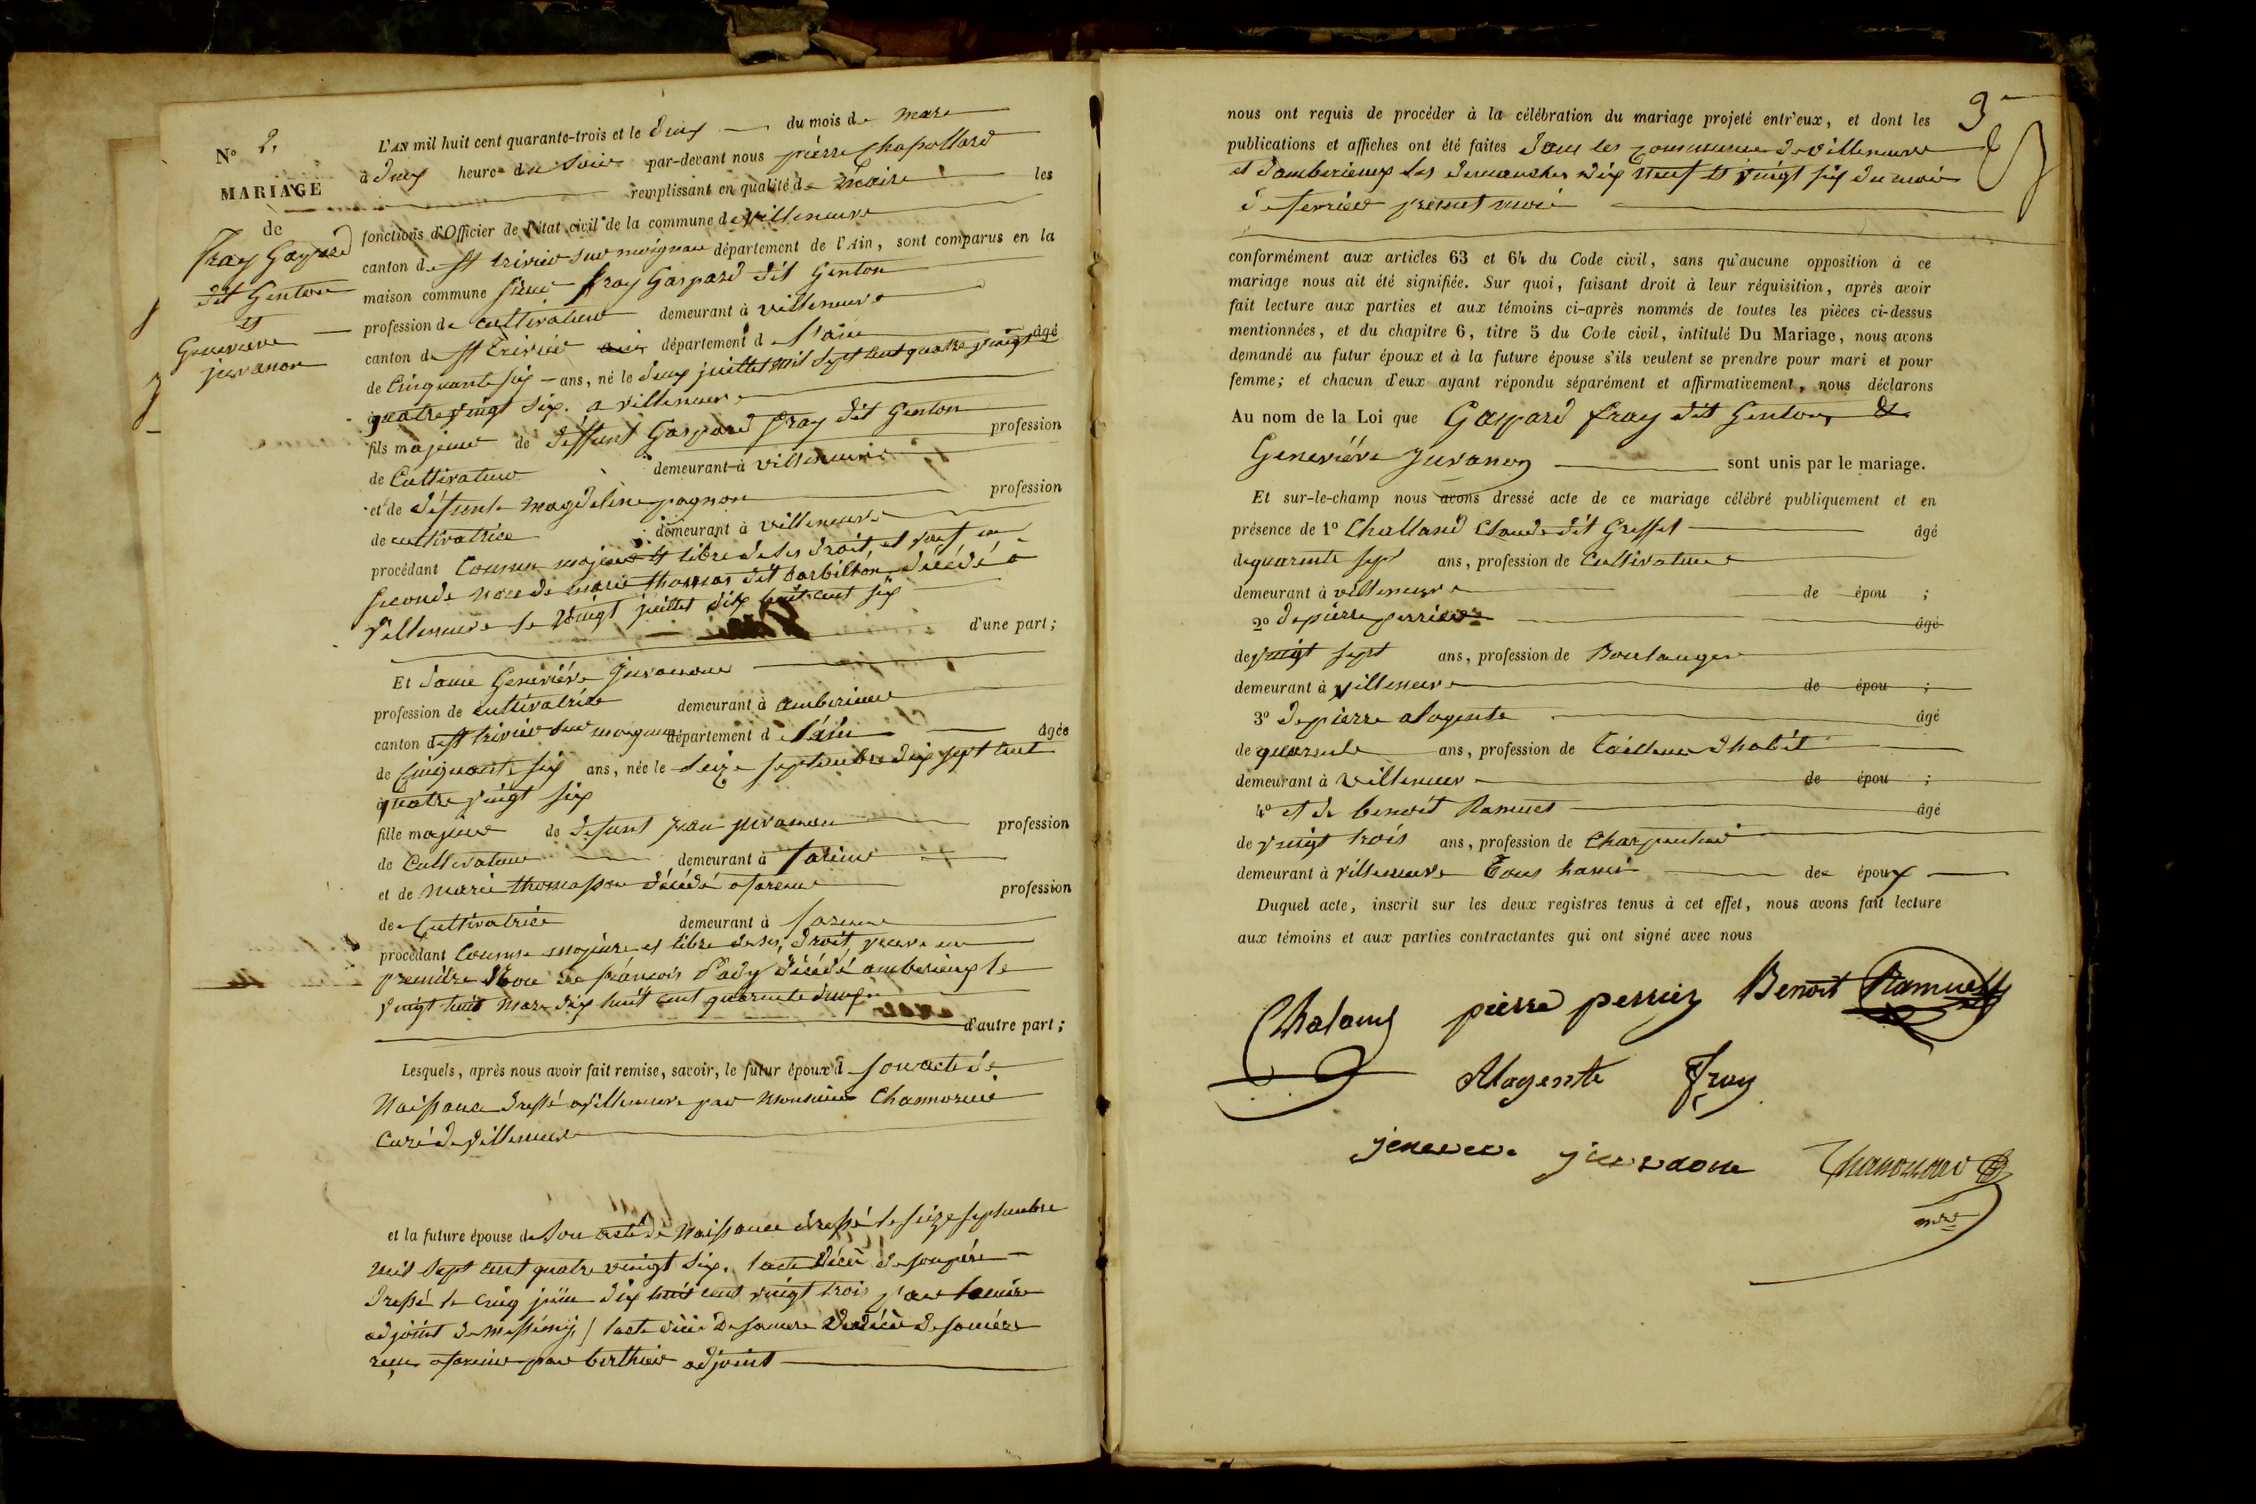 N° 2.
MARIAGE
de
fray Gaspard
dit Genton
et
Genevieve
juvanon
L'AN mil huit cent quarante-trois et le deux du mois de mars
à deux heure du Soir par-devant nous pierre Chapollard
remplissant en qualité de Maire les
fonctions d'Officier de l'état civil de la commune de villeneuve
canton de St trivier sur moignan département de l'Ain, sont comparus en la
maison commune sieur fray Gaspard dit Genton
profession de cultivateur demeurant à villeneuve
canton de St trivier département d l'ain âgé
de Cinquante six ans, né le deux juillet mil sept cent quatre vingt
quatre vingt six. a villeneuve
fils majeur de deffunt Gaspard fray dit Genton profession
de Cultivateur demeurant à villeneuve
et de défunte magdeleine pagnon profession
de cultivatrice demeurant à villeneuve
procédant Comme majeur et libre de ses droit et veuf en
seconde noce de marie thomas dit barbilhon décédé à
villeneuve le vingt juillet dix huit cent six
d'une part;
Et dame Geneviéve Juvanon
profession de cultivatrice demeurant à amberieux
canton de St trivier sur moignan département d l'ain âgée
de Cinquante six ans, née le seize septembre dix sept cent
quatre vingt six
fille majeur de défunt jean juvanon profession
de Cultivateur demeurant à
et de marie thomasson décédé a profession
de Cultivatrice demeurant à
procédant Comme majeure et libre de ses droit, veuve en
premiere Noce de françois décédé amberieux le
vingt huit mars dix huit cent quarante deux
d'autre part;
Lesquels, après nous avoir fait remise, savoir, le futur époux d son acte de
Naissance dressé a villeneuve par monsieur
Curé de villeneuve
et la future épouse de son acte de Naissance dressé le seize septembre
mil sept cent quatre vingt six. l'acte décè de son père
dressé le cinq juin dix huit cent vingt trois par
adjoint de messimy / l'acte décè de sa mere de sa mére
reçu par berthier adjoint
3
nous ont requis de procéder à la célébration du mariage projeté entr'eux, et dont les
publications et affiches ont été faites dans les communes de villeneuve
et d'amberieux les dimanches dix neuf et vingt six du moi
de fevrier
conformément aux articles 63 et 64 du Code civil, sans qu'aucune opposition à ce
mariage nous ait été signifiée. Sur quoi, faisant droit à leur réquisition, après avoir
fait lecture aux parties et aux témoins ci-après nommés de toutes les pièces ci-dessus
mentionnées, et du chapitre 6, titre 5 du Code civil, intitulé Du Mariage, nous avons
demandé au futur époux et à la future épouse s'ils veulent se prendre pour mari et pour
femme; et chacun d'eux ayant répondu séparément et affirmativement, nous déclarons
Au nom de la Loi que Gaspard fray dit Genton, &
Geneviéve Juvanon sont unis par le mariage.
Et sur-le-champ nous avons dressé acte de ce mariage célébré publiquement et en
présence de 1° Challand Claude dit Greffet âgé
de quarente sept ans, profession de Cultivateur
demeurant à villeneuve de épou ;
2° de pierre perrier âgé
de vingt sept ans, profession de Boulanger
demeurant à villeneuve de épou ;
3° de pierre alogente âgé
de quarente ans, profession de tailleur d'habit
demeurant à villeneuve de épou ;
4° et de benoit Ramuet âgé
de vingt trois ans, profession de Charpentier
demeurant à villeneuve Tous hamis des époux
Duquel acte, inscrit sur les deux registres tenus à cet effet, nous avons fait lecture
aux témoins et aux parties contractantes qui ont signé avec nous
Chaland pierre perrier Benoit Ramuet
Alogente Fray
mre